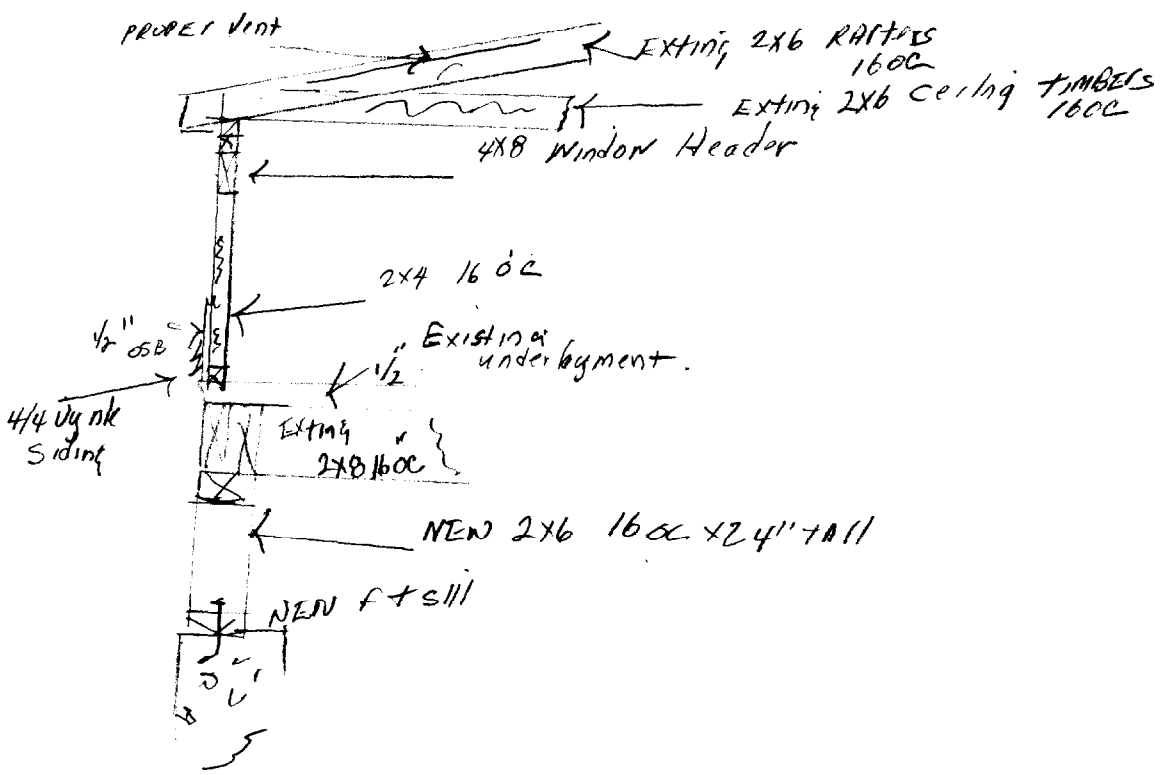 PROPER Vent
EXting 2x6 RAfters
16 OC
EXting 2x6 Ceiling TIMBERS
16 OC
4x8 Window Header
2x4 16 OC
1/2" OSB
1/2" Existing
underlayment.
4/4
Siding
EXting
2x8 16" OC
NEW 2x6 16 OC x24" tAll
NEW